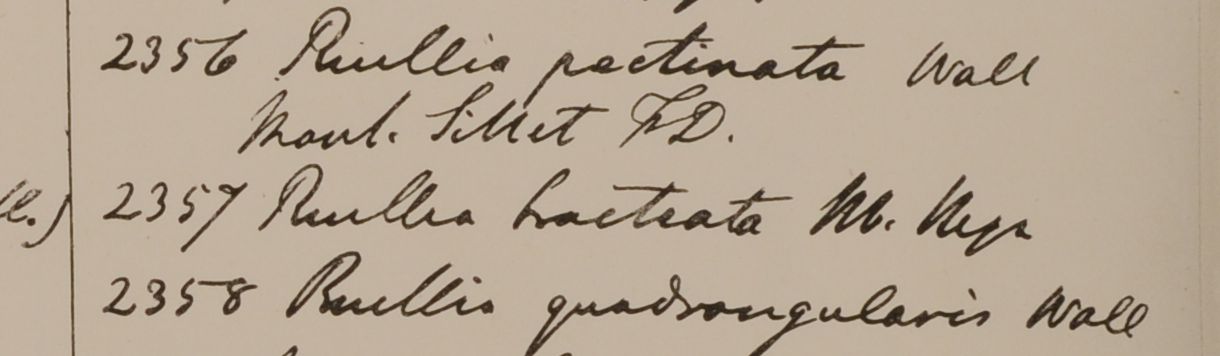 2356 Ruellia pectinata Wall
Mont. Sillet F.D.
ll.)
2357 Ruellia bracteata
2358 Ruellia quadrangularis Wall